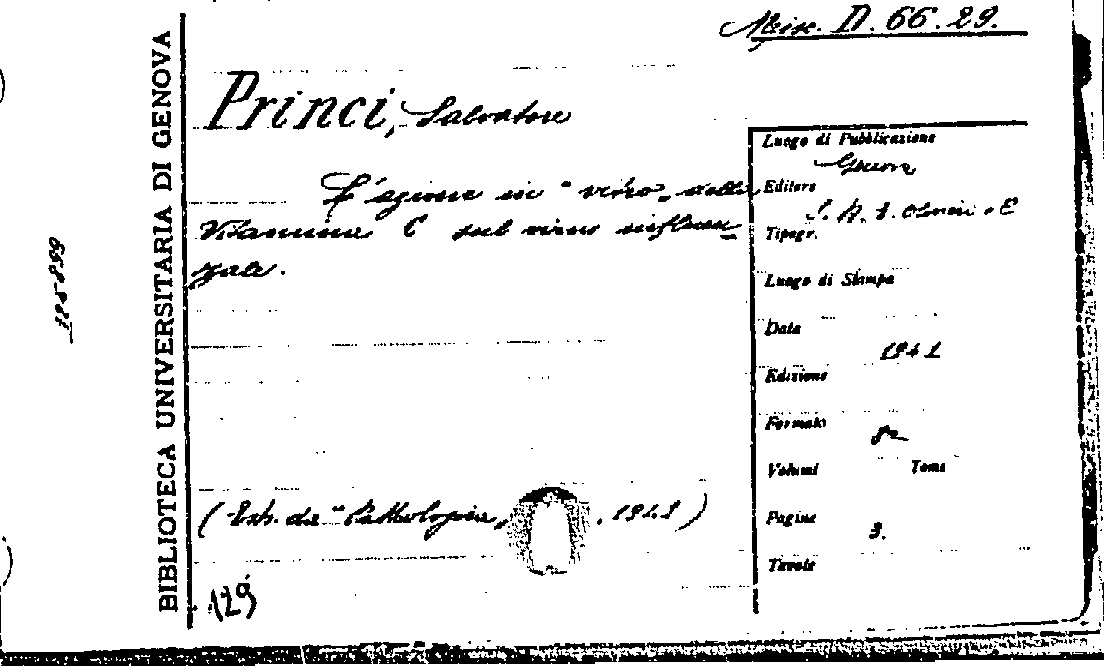 Misc. D. 66. 29.
BIBLIOTECA UNIVERSITARIA DI GENOVA
Princi, Salvatore
L'azione in "vivo" della
Vitamina C sul virus influen=
zale.
(Estr. da "Pathologica", 1941)
129
Luogo di Pubblicazione
Genova
Editore
Tipogr.
Luogo di Stampa
Data
1941
Edizione
Formato
8°
Volumi Tomi
Pagine
3.
Tavole